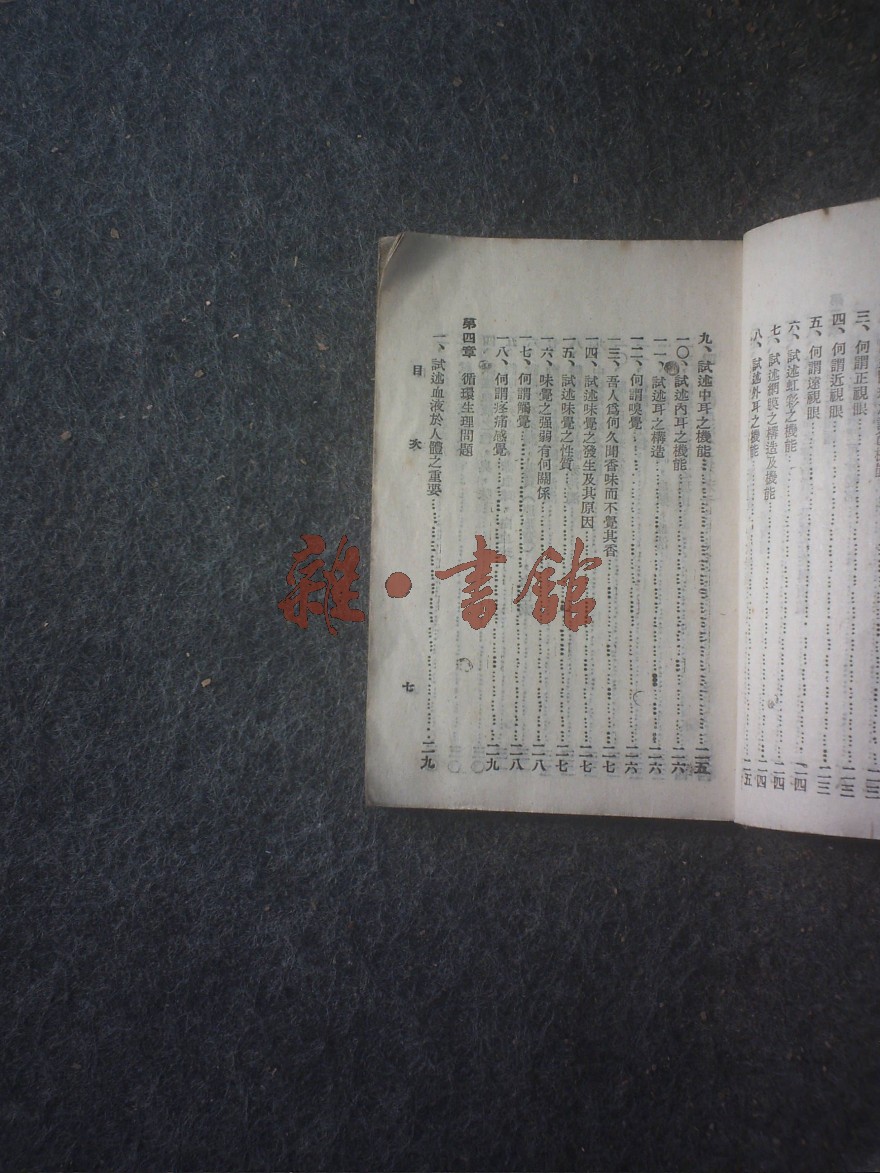 三、何謂正視眼……一三
四、何謂近視眼……一三
五、何謂遠視眼……一三
六、試述虹彩之機能……一四
七、試述網膜之構造及機能……一四
八、試述外耳之機能……一五
九、試述中耳之機能……二五
一〇、試述內耳之機能……二六
一一、試述耳之構造……二六
一二、何謂嗅覺……二六
一三、吾人爲何久聞香味而不覺其香……二七
一四、試述味覺之發生及其原因……二七
一五、試述味覺之性質……二七
一六、味覺之强弱有何關係……二八
一七、何謂觸覺……二八
一八、何謂疼痛感覺……二九
第四章 循環生理問題
一、試述血液於人體之重要……二九
目次
七
雜·書館